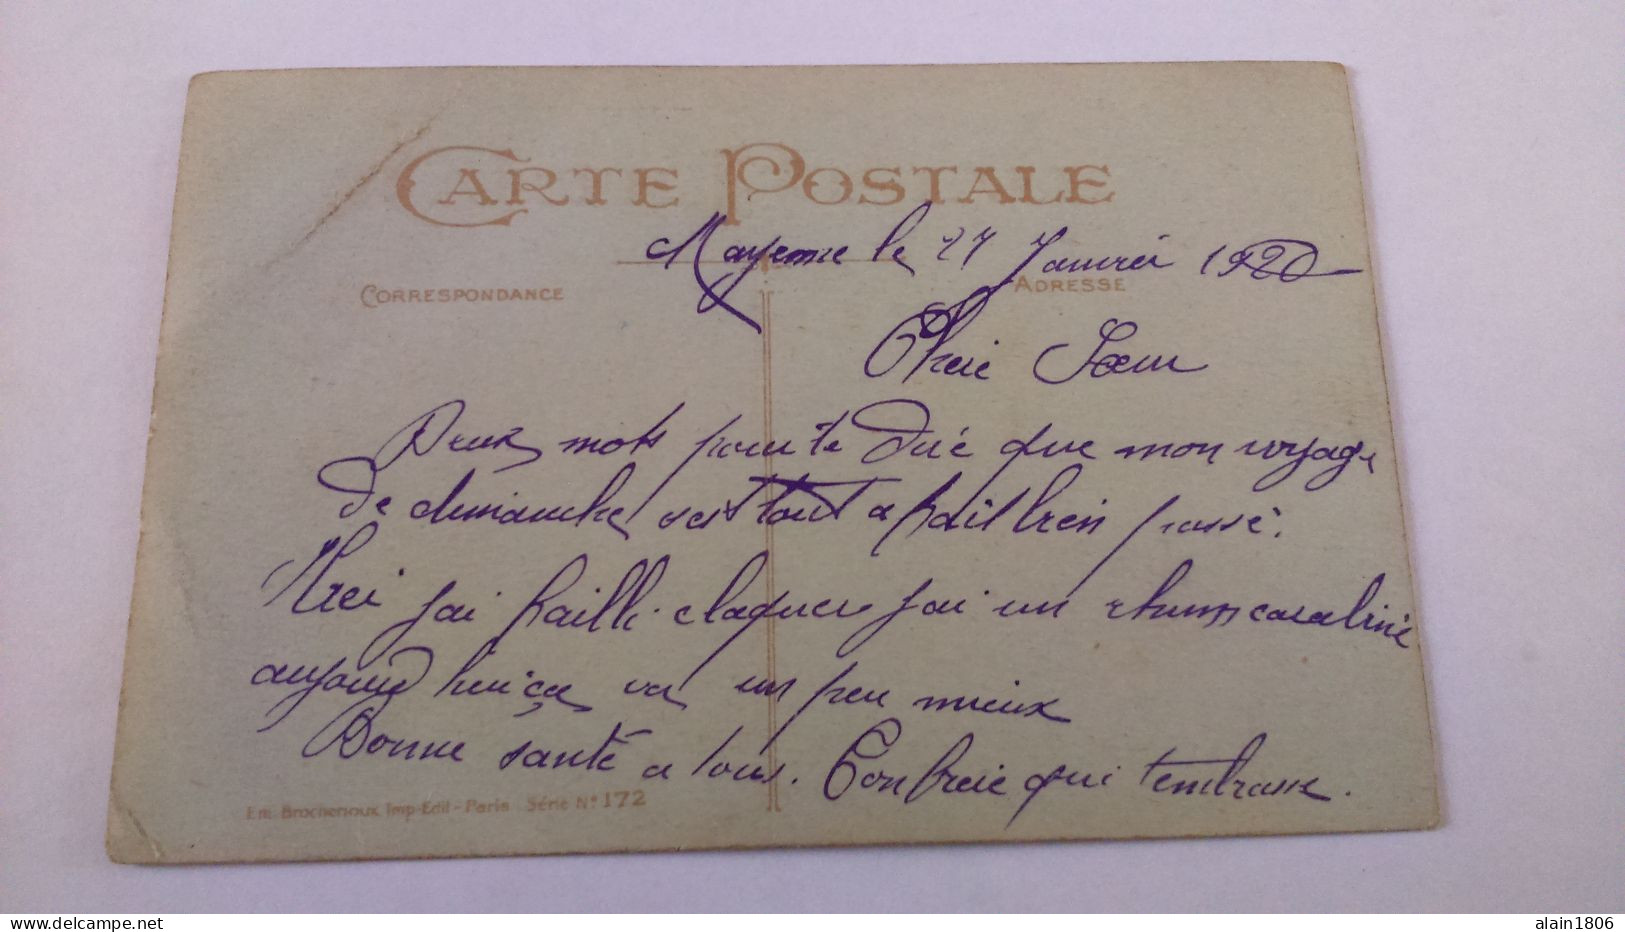 CARTE POSTALE
Mayenne le 27 Janvier 1920
CORRESPONDANCE
ADRESSE
Cherie Sœur
Deux mots pour te dire que mon voyage
de dimanche est tout a fait bien passé.
Mai j'ai failli claquer j'ai un rhum carabiné
aujourd hui ça va un peu mieux
Bonne santé a tous. Ton freie qui t'embrasse.
Em. Brocherioux Imp-Edit - Paris Série N° 172
www.delcampe.net
alain1806